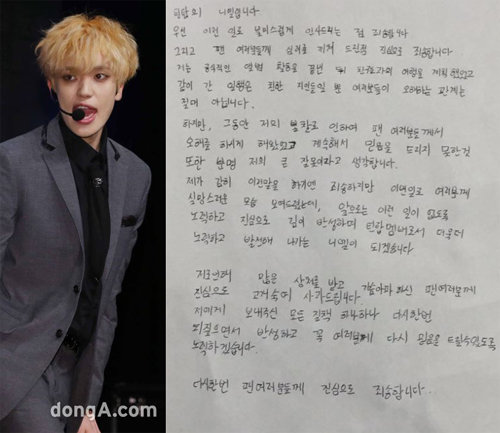 틴탑의 니엘입니다
우선 이런 일로 갑작스럽게 인사드리는 점 죄송합니다
그리고 팬 여러분들께 심려를 끼쳐 드린점 진심으로 죄송합니다.
저는 공식적인 앨범 활동을 끝낸 뒤 친구들과의 여행을 계획 했었고
같이 간 일행은 친한 지인들일 뿐 여러분들이 오해하는 관계는
절대 아닙니다.
하지만, 그동안 저의 불찰로 인하여 팬 여러분들께서
오해를 하시게 해왔었고 계속해서 믿음을 드리지 못한것
또한 분명 저의 큰 잘못이라고 생각합니다.
제가 감히 이런말을 하기엔 죄송하지만 이번일로 여러분께
실망스러운 모습 보여드렸는데, 앞으로는 이런 일이 없도록
노력하고 진심으로 깊이 반성하며 틴탑멤버로서 더욱더
노력하고 발전해 나가는 니엘이 되겠습니다
저로인해 많은 상처를 받고 가슴아파 하신 팬여러분께
진심으로 고개숙여 사과드립니다
저에게 보내주신 모든 질책 하나하나 다시한번
되짚으면서 반성하고 꼭 여러분께 다시 믿음을 드릴수있도록
노력하겠습니다.
다시한번 팬여러분들께 진심으로 죄송합니다...
dongA.com